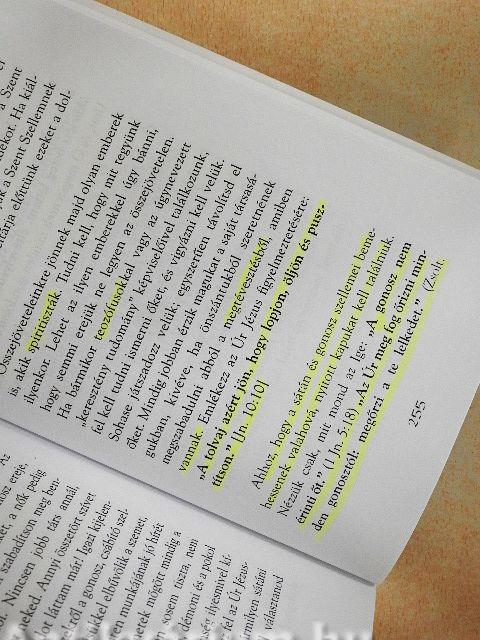 a Szent
Ha kiál-
a Szent Szellemnek
előttünk ezeket a dol-
Összejöveteleinkre jönnek majd olyan emberek
is, akik spiritiszták. Tudni kell, hogy mit tegyünk
ilyenkor. Lehet az ilyen emberekkel úgy bánni,
hogy semmi erejük ne legyen az összejövetelen.
Ha bármikor teozófusokkal vagy az úgynevezett
„keresztény tudomány” képviselőivel találkozunk,
fel kell tudni ismerni őket, és vigyázni kell velük.
Sohase játsszadozz velük: egyszerűen távolítsd el
őket. Mindig jobban érzik magukat a saját társasá-
gukban, kivéve, ha önszántukból szeretnének
megszabadulni abból a megtévesztésből, amiben
vannak. Emlékezz az Úr Jézus figyelmeztetésére:
„A tolvaj azért jön, hogy lopjon, öljön és pusz-
títson.” [Jn. 10:10]
Ahhoz, hogy a sátán és gonosz szellemei beme-
hessenek valahová, nyitott kapukat kell találniuk.
Nézzük csak, mit mond az Ige: „A gonosz nem
érinti őt.” (1 Jn. 5:18) „Az Úr meg fog őrizni min-
den gonosztól; megőrzi a te lelkedet.” (Zsolt.
255
Az
ereje,
a nők pedig
szabadítson meg ben-
Nincsen jobb társ annál,
Annyi összetört szívet
láttam már! Igazi kijelen-
a gonosz, csábító szel-
elbűvölik a szemet,
munkájának jó hírét
mögött mindig a
sosem tiszta, nem
démoni és a pokol
ilyesmivel ki-
az Úr Jézus-
sátáni
választanod